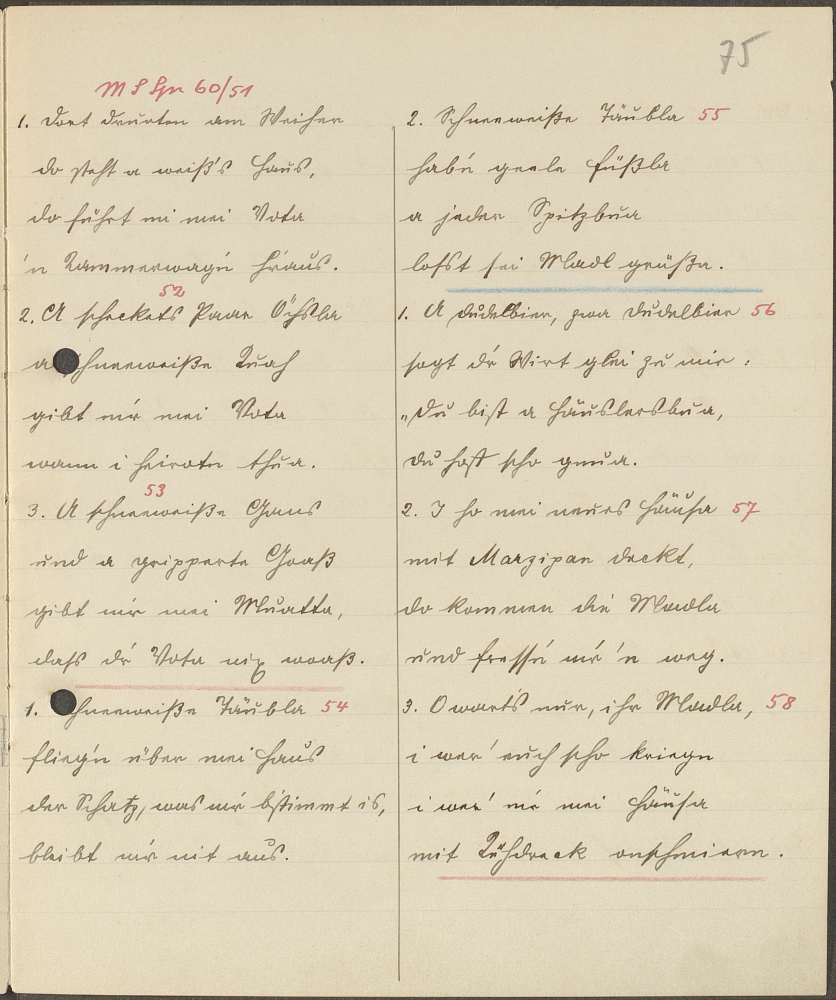 75
M S Spr 60/51
1. Dort drunten am Weiher
do steht a weiß's Haus,
do führt mi mei Vota
'n Kammerwag'n h'raus.
52
2. A scheckets Paar Öchsla
a schneeweiße Kuah
gibt mir mei Vota
wann i heiratn thua.
53
3. A schneeweiße Gans
und a gripperte Goaß
gibt mir mei Muatta,
dass dr Vota nix woaß.
1. Schneeweiße Täubla 54
flieg'n über mei Haus
der Schatz, was mir b'stimmt is,
bleibt mir nit aus.
2. Schneeweiße Täubla 55
hab'n geele Füßla
a jeder Spitzbua
losst sei Madl grüßn.
1. A Dudelbier, zwa Dudelbier 56
sogt dr Wirt glei zu mir:
"Du bist a Häuslersbua,
du host scho gnua.
2. I ho mei neues Häusa 57
mit Marzipan deckt,
do kommen die Madla
und fressn mr'n weg.
3. O wart's nur, ihr Madla, 58
i wer' euch scho kriegn
i wer' mr mei Häusa
mit Kühdreck onschmiern.